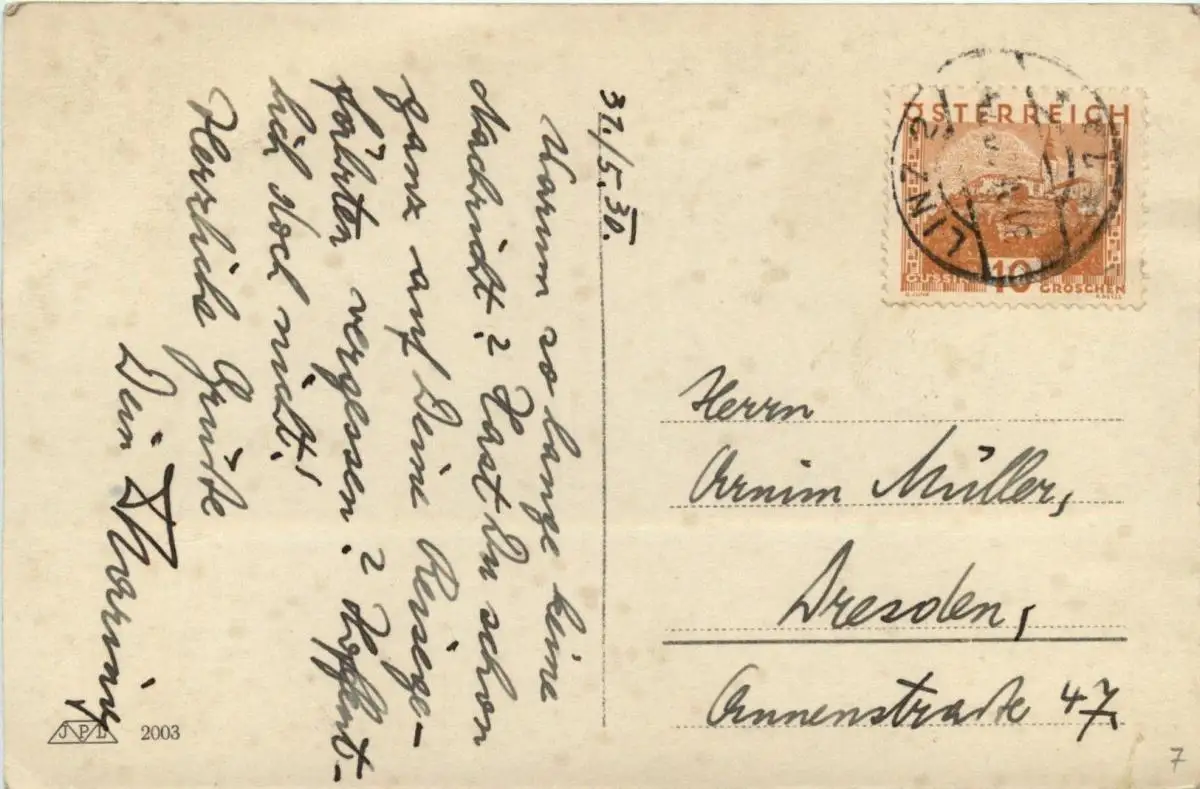 31./5.30.
Warum so lange keine
Nachricht? Hast Du schon
ganz auf Deine Reisege-
fährten vergessen? Hoffent-
lich doch nicht!
Herzliche Grüße
Dein
ÖSTERREICH
LINZ 2
GÜSSING 10 GROSCHEN
Herrn
Armin Müller,
Dresden,
Annenstraße 47.
JPL 2003
7